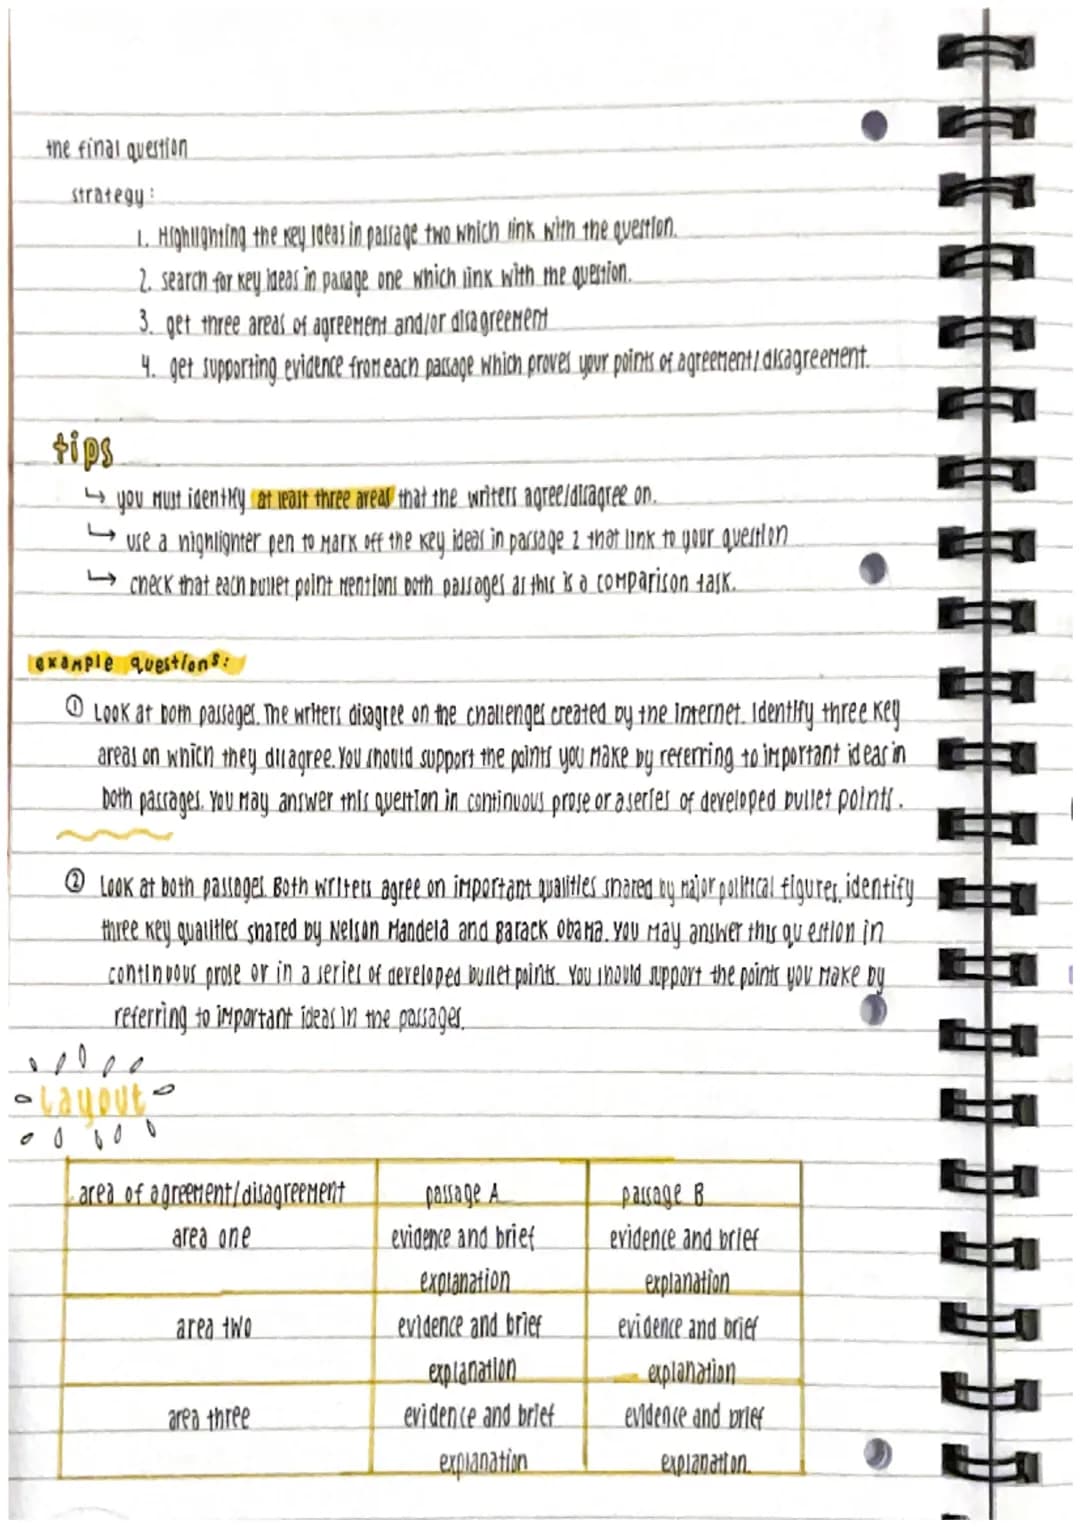 the final question
strategy:
1. Highlighting the key ideas in passage two which link with the question.
2. search for key ideas in passage one which link with the question.
3. get three areas of agreement and/or disagreement
4. get supporting evidence from each passage which proves your points of agreement/disagreement.
tips
↳ you must identify at least three areas that the writers agree/disagree on.
↳ use a highlighter pen to mark off the key ideas in passage 2 that link to your question
↳ check that each bullet point mentions both passages as this is a comparison task.
example questions:
① Look at both passages. The writers disagree on the challenges created by the internet. Identify three key
areas on which they disagree. You should support the points you make by referring to important ideas in
both passages. You may answer this question in continuous prose or a series of developed bullet points.
② Look at both passages. Both writers agree on important qualities shared by major political figures, identify
three key qualities shared by Nelson Mandela and Barack Obama. you may answer this question in
continuous prose or in a series of developed bullet points. You should support the points you make by
referring to important ideas in the passages.
Layout
area of agreement/disagreement passage A passage B
area one evidence and brief evidence and brief
explanation explanation
area two evidence and brief evidence and brief
explanation explanation
area three evidence and brief evidence and brief
explanation explanation